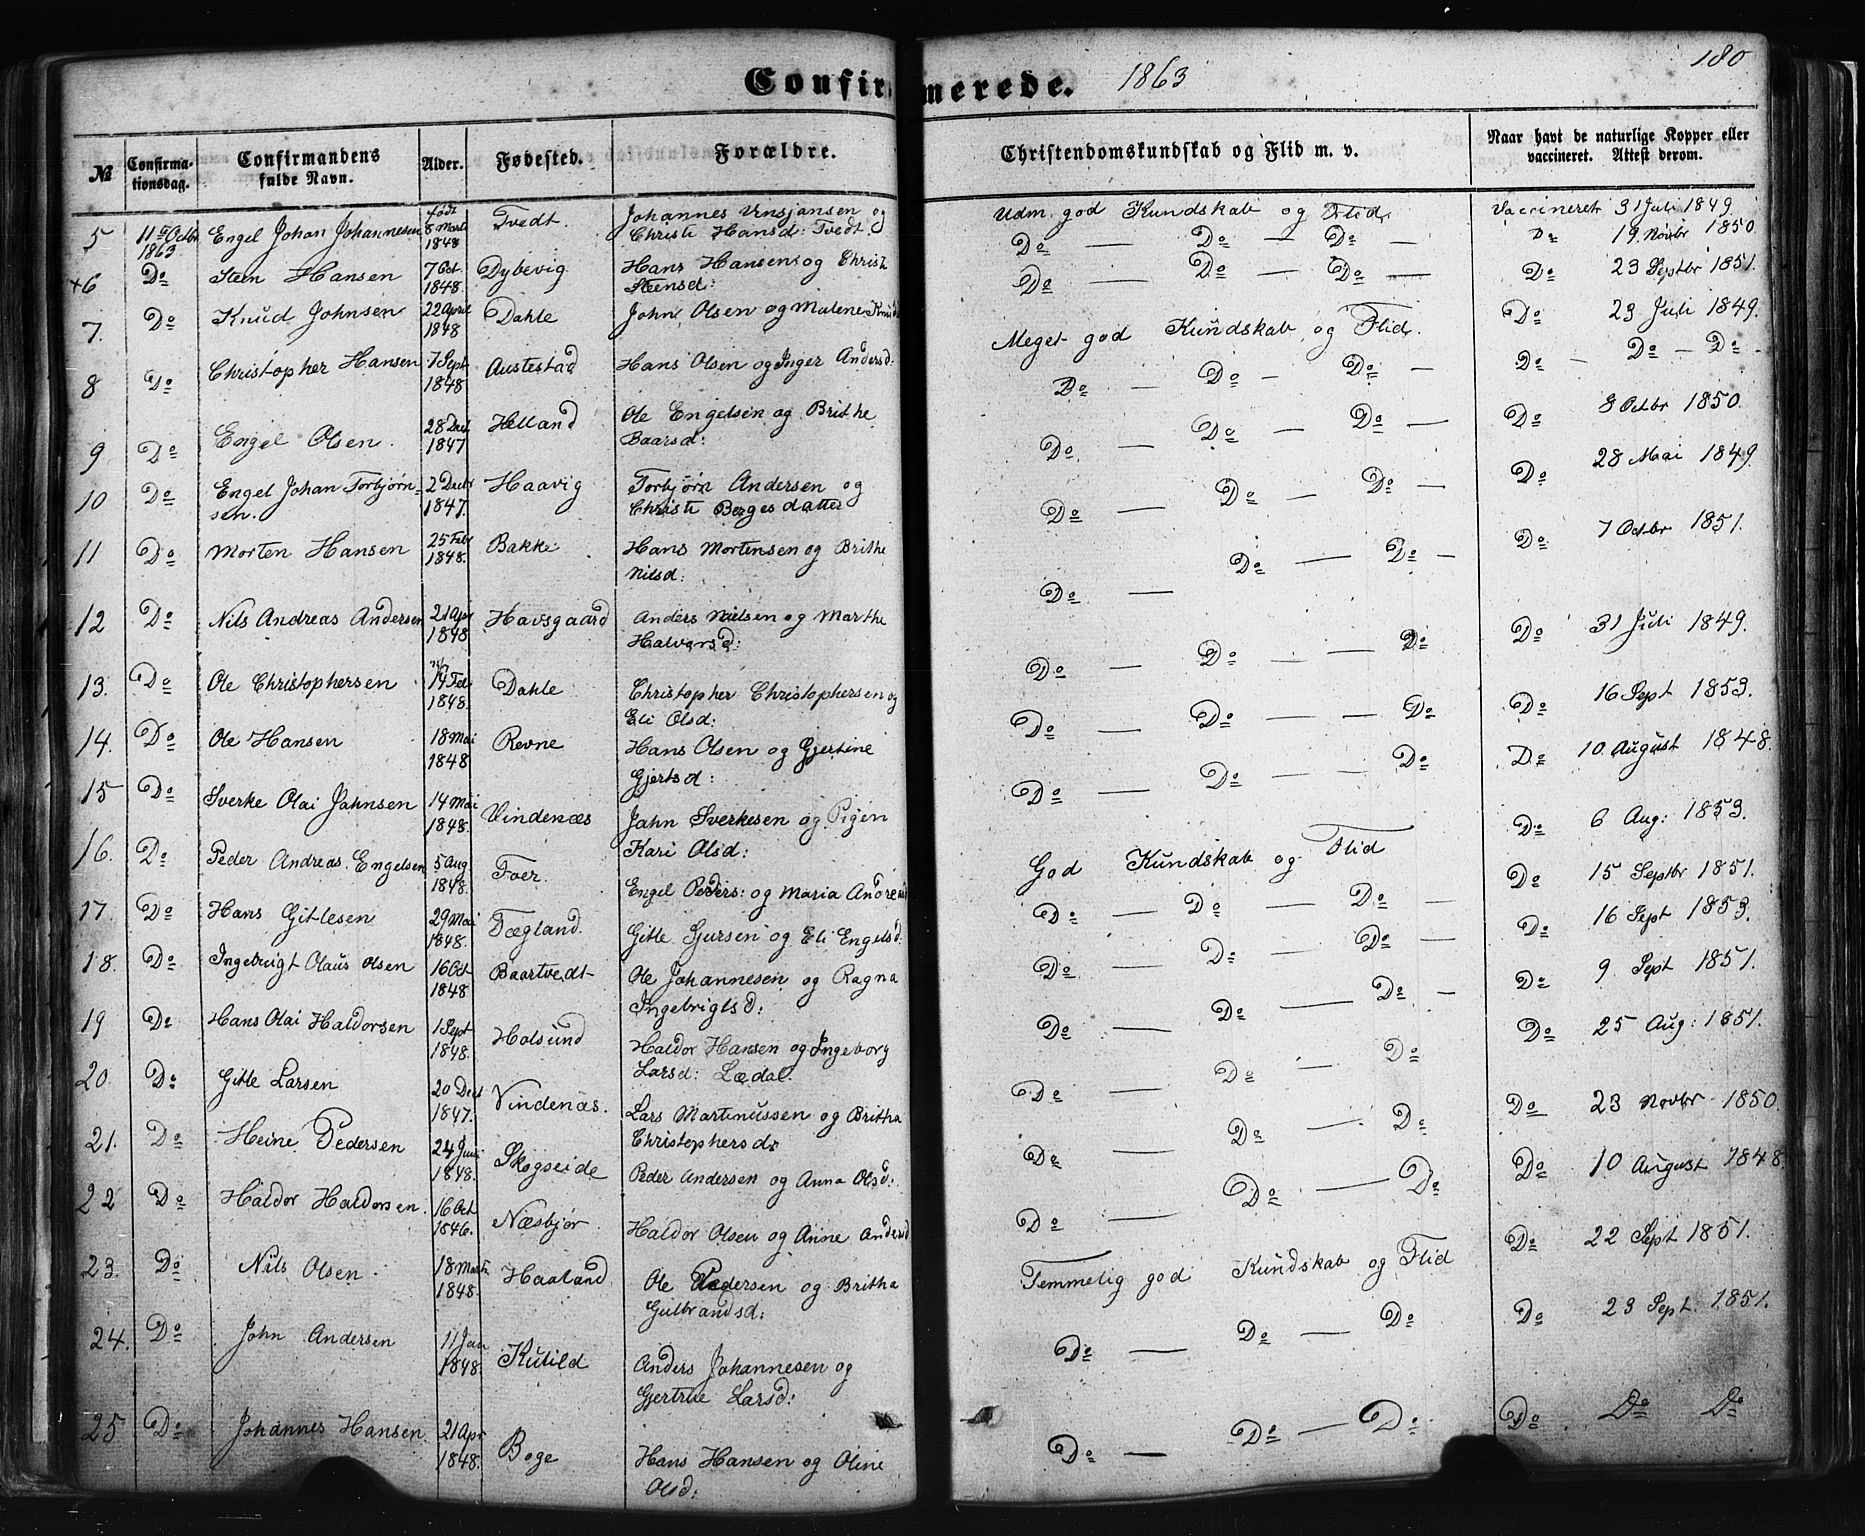 180
Confirmerede. 1863
№
Confirmationsdag.
Confirmandens fulde Navn.
Alder.
Fødested.
Forældre.
Christendomskundskab og Flid m. v.
Naar havt de naturlige Kopper eller vaccineret. Attest derom.
5 11te Octbr 1863 Engel Johan Johannesen født 8 Marts 1848 Tvedt. Johannes Christi Hansd: Tvedt. Udm. god Kundskab og Flid. Vaccineret 31 Juli 1849.
+6 Do Steen Hansen 7 Oct 1848. Dybevig Hans Hansen og Christi Steensd: Do — Do — Do — Do 19 Novbr 1850
7. Do Knud Johnsen 22 April 1848 Dahle John Olsen og Malene Do — Do — Do — Do 23 Septbr 1851.
8 Do Christopher Hansen 7 Sept 1848 Austestad Hans Olsen og Inger Andersd. Meget god Kundskab og Flid. Do 23 Juli 1849.
9 Do Engel Olsen. 28 Dect 1847 Helland Ole Engelsen og Brithe Baarsd: Do — Do — Do — Do — Do — Do -
10 Do Engel Johan Torbjørnsen. 2 Decbr 1847. Haavig Torbjørn Andersen og Christi Bergesdatter Do — Do — Do — Do 8 Octbr 1850.
11 Do Morten Hansen 25 Febr 1848. Bakke Hans Mortensen og Brithe Nilsd: Do — Do — Do — Do 28 Mai 1849.
12 Do Nils Andreas Andersen 21 Apr 1848 Havsgaard Anders Nielsen og Marthe Halvorsd: Do — Do — Do — Do 7 Octbr 1851.
13. Do Ole Christophersen 14 Feb 1848. Dahle Christopher Christophersen og Eli Olsd: Do — Do — Do Do 31 Juli 1849.
14. Do Ole Hansen 18 Mai 1848 Revne Hans Olsen og Gjertine Gjertsd: Do — Do — Do Do 16 Sept 1853.
15 Do Sverke Olai Jahnsen 14 Mai 1848. Vindenæs Jahn Sverkesen og Pigen Kari Olsd: Do — Do — Do Do 10 August 1848.
16. Do Peder Andreas Engelsen 5 Aug 1848. Foer. Engel Peders: og Maria God Kundskab og Flid Do 6 Aug: 1853.
17. Do Hans Gitlesen 29 Mai 1848. Tægland. Gitle Sjursen og Eli Engelsd. Do — Do — Do — Do 15 Septbr 1851.
18. Do Ingebrigt Olaus Olsen 16 Oct 1848 Baartvedt Ole Johannesen og Ragna Ingebrigtsd: Do — Do — Do — Do 16 Sept 1853.
19 Do Hans Olai Haldorsen 1 Sept 1848. Holsund Haldor Hansen og Ingeborg Larsd: Lædal. Do — Do — Do — Do 9 Sept 1851.
20 Do Gitle Larsen 20 Dect 1847. Vindenæs. Lars Martinussen og Britha Christophersd: Do — Do — Do Do 25 Aug: 1851.
21. Do Heine Pedersen 24 Juni 1848. Skogseide Peder Andersen og Anna Olsd: Do — Do — Do Do 23 Novbr 1850.
22 Do Haldor Haldorsen. 16 Oct 1846. Næsbjør. Haldor Olsen og Anne Andersd Do — Do — Do Do 10 August 1848.
23. Do Nils Olsen. 18 Marts 1848. Haaland Ole Pedersen og Britha Gulbrandsd: Temmelig god Kundskab og Flid Do 22 Sept 1851.
24. Do John Andersen 11 Jan 1848. Kutild Anders Johannesen og Gjertrue Larsd: Do — Do — Do Do 23 Sept. 1851.
25 Do Johannes Hansen. 21 Apr 1848. Boge Hans Hansen og Oline Olsd: Do — Do — Do. Do Do Do